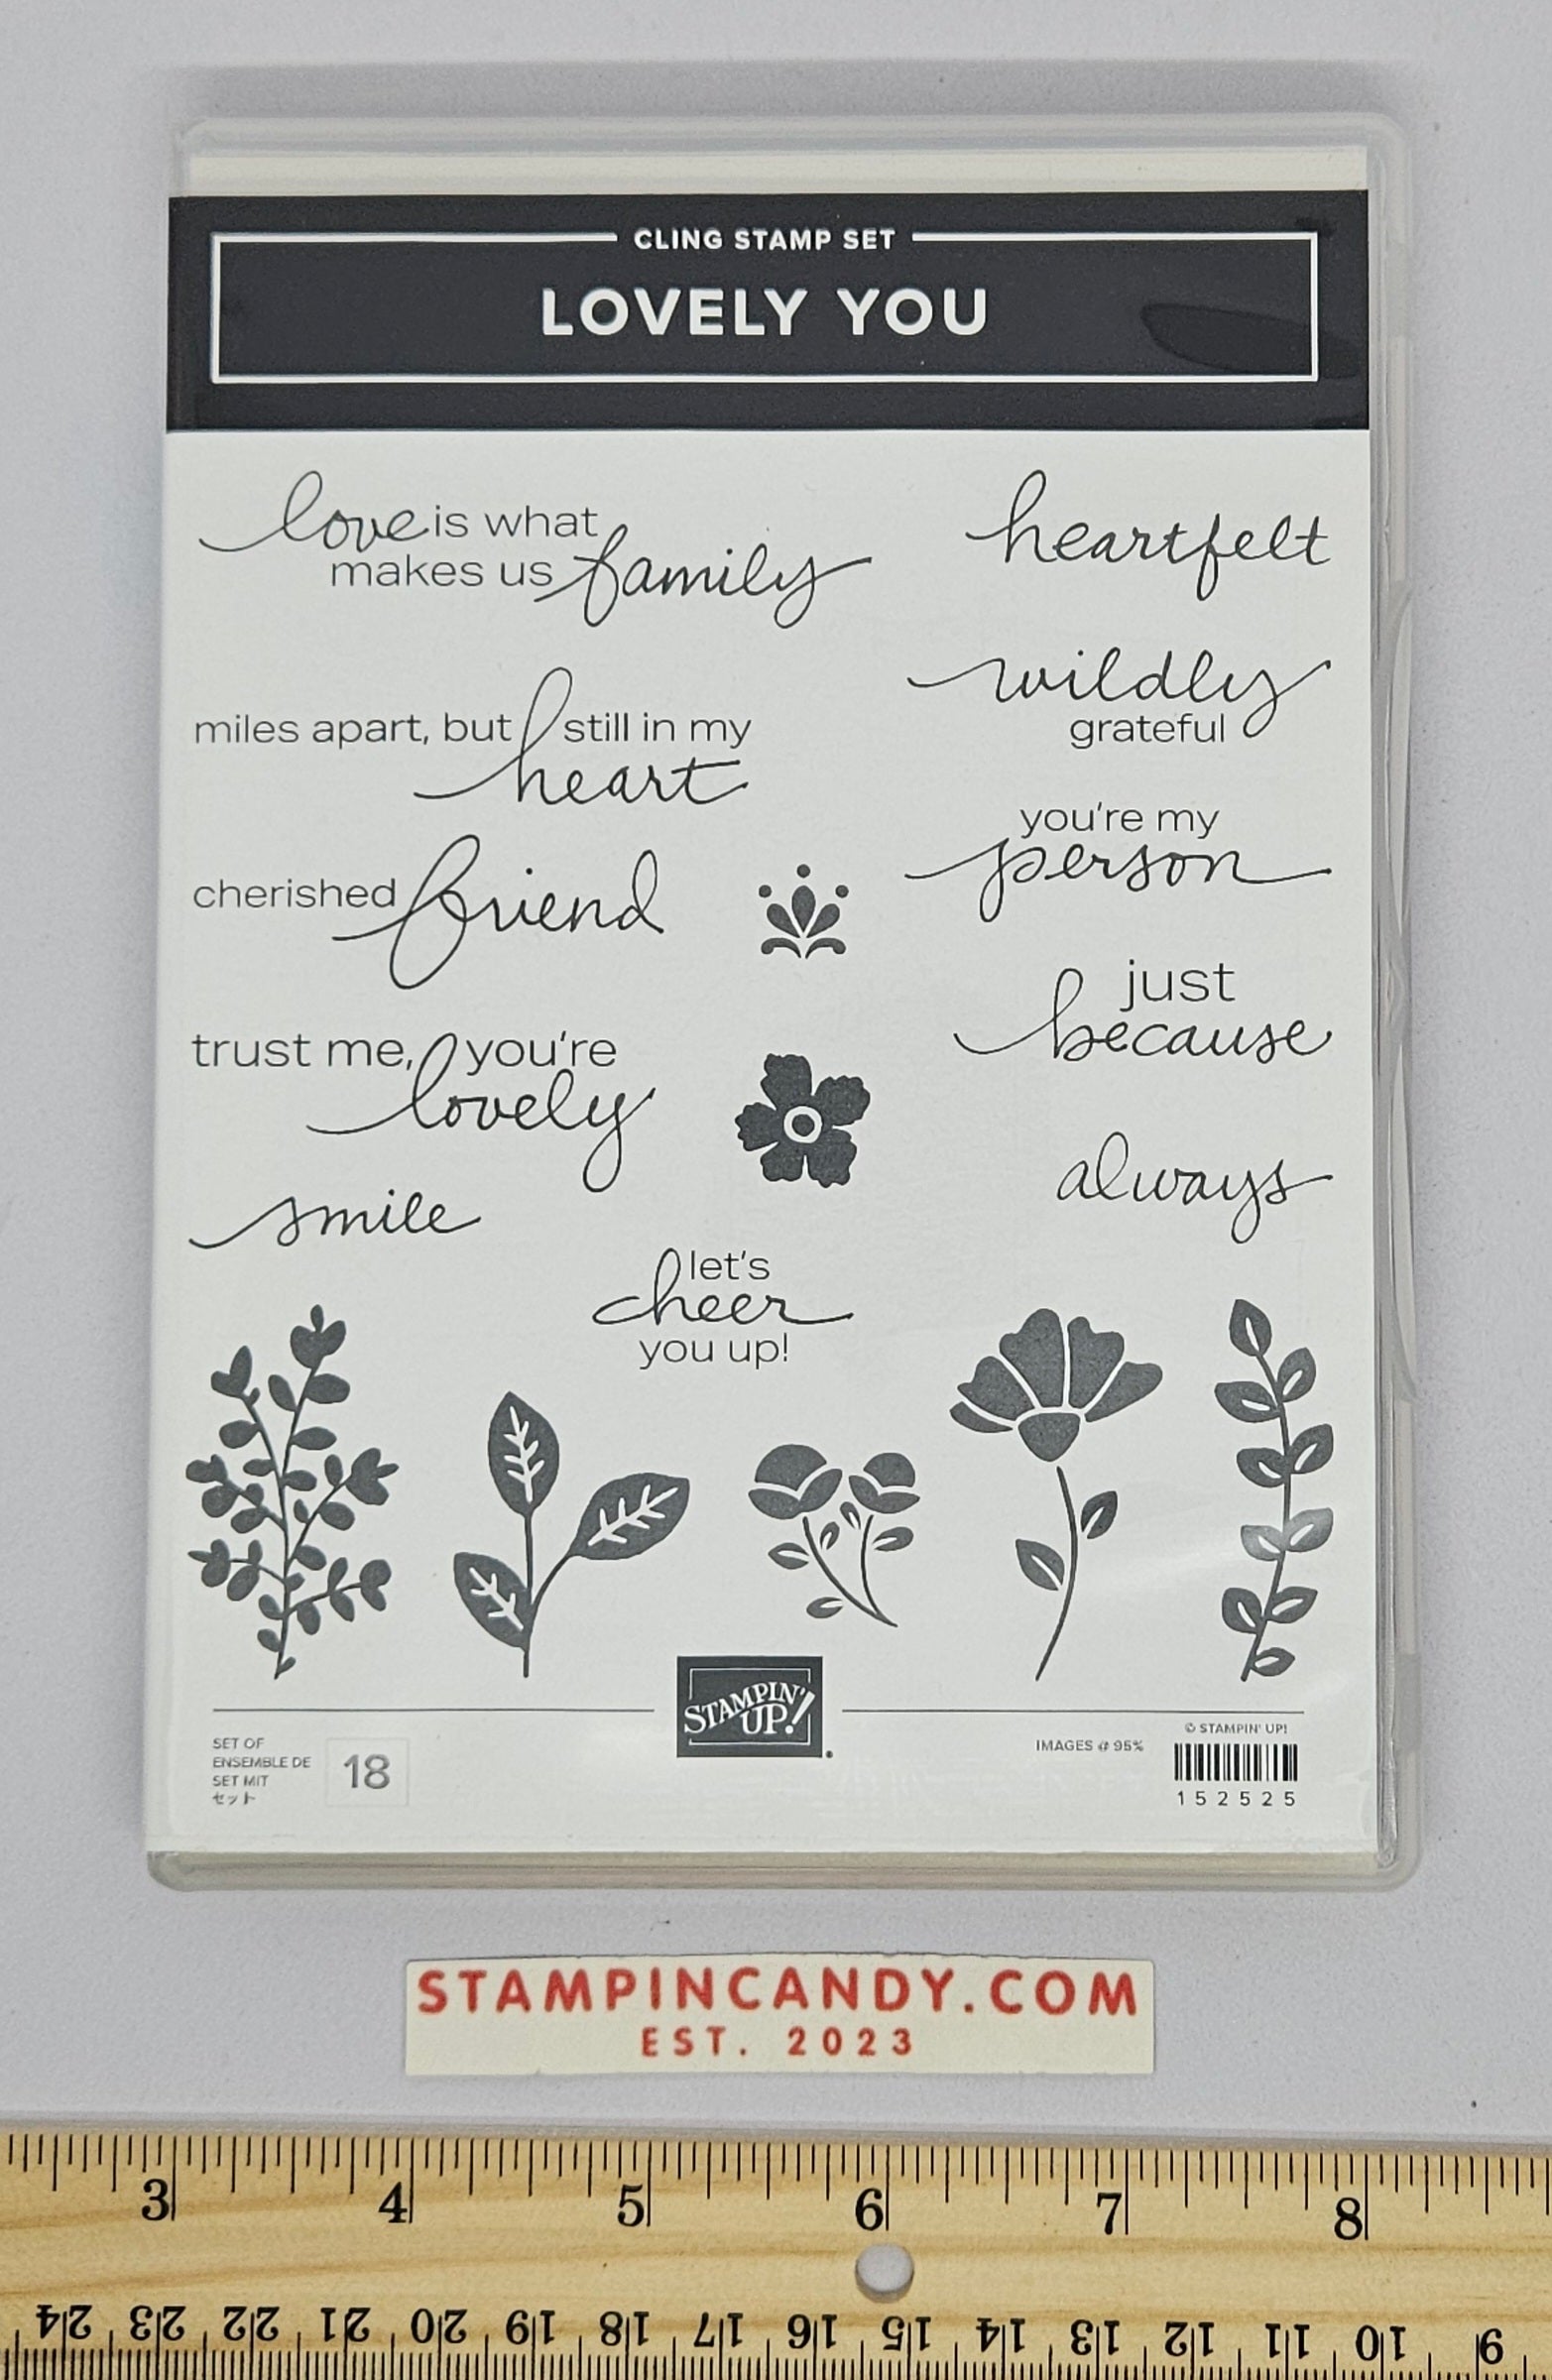 CLING STAMP SET
LOVELY YOU
love is what
makes us family
heartfelt
miles apart, but still in my
heart
wildly
grateful
cherished friend
you're my
person
trust me, you're
lovely
just
because
smile
always
let's
cheer
you up!
STAMPIN'
UP!
SET OF
ENSEMBLE DE
SET MIT
セット
18
IMAGES @ 95%
© STAMPIN' UP!
152525
STAMPINCANDY.COM
EST. 2023
3 4 5 6 7 8
24 23 22 21 20 19 18 17 16 15 14 13 12 11 10 9